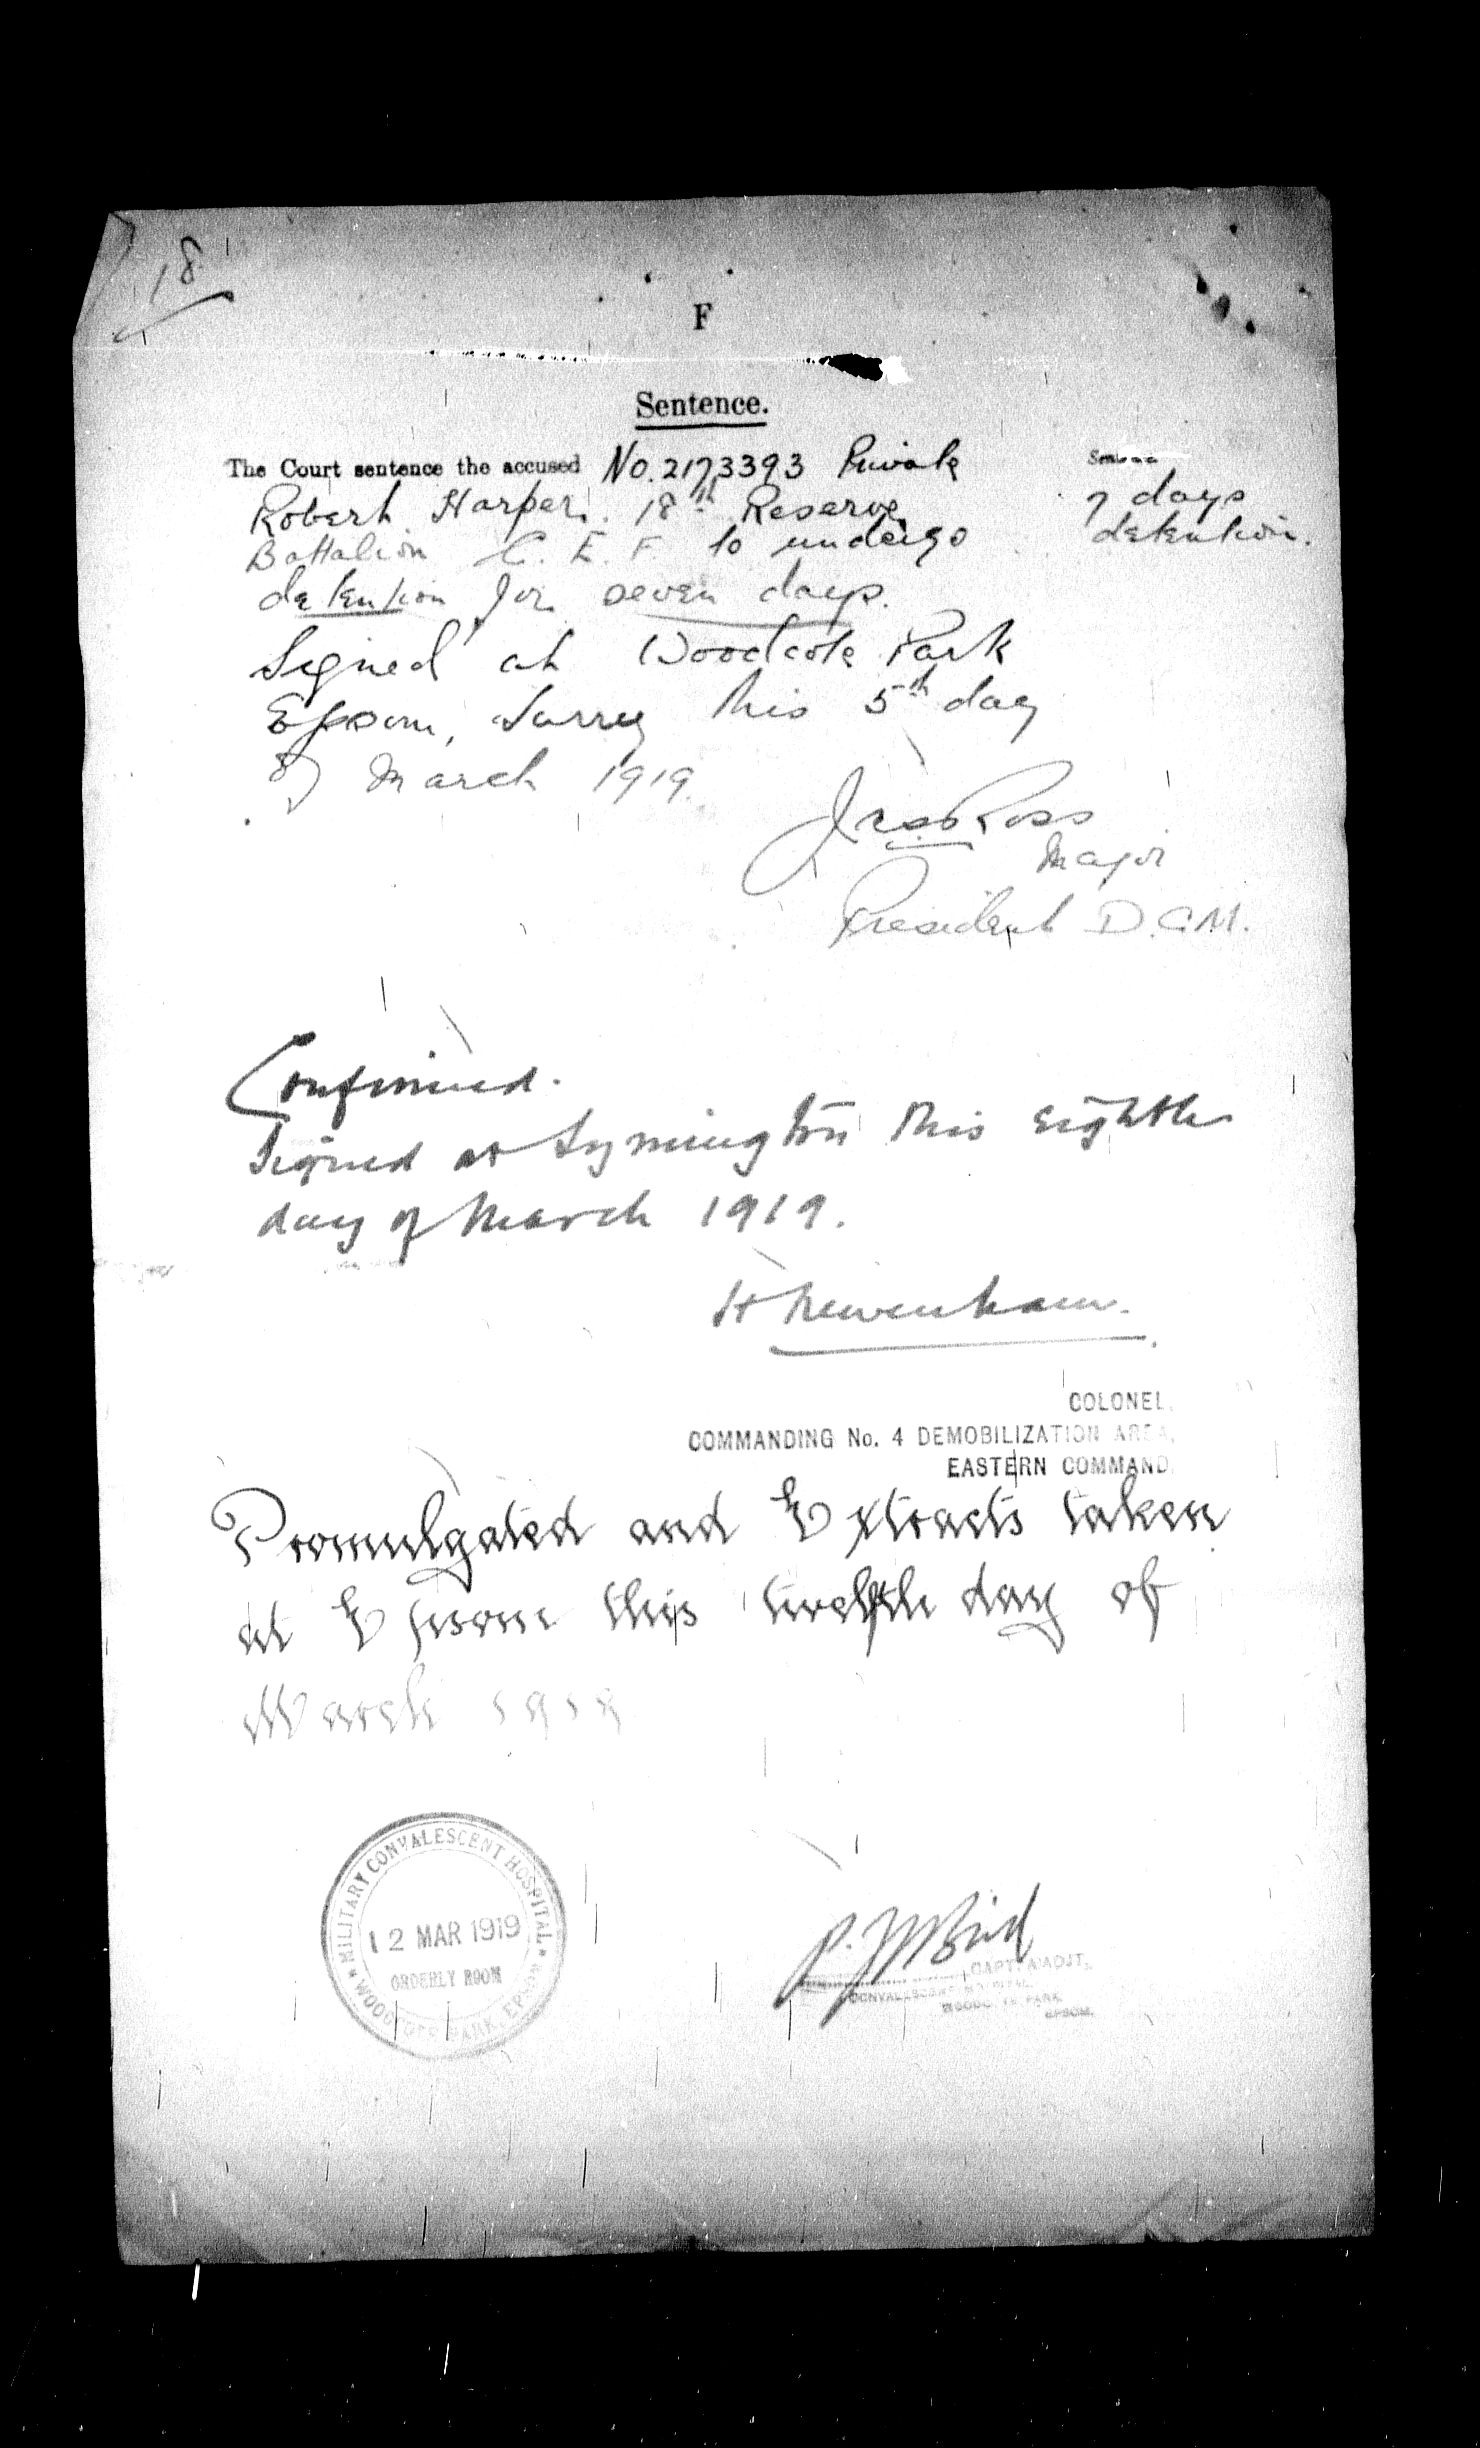 18
F
Sentence.
The Court sentence the accused No. 2173393 Private
Robert Harper. 18th Reserve
Battalion C. E. F. to undergo
detention for seven days.
Sentence
7 days
detention.
Signed at Woodcote Park
Epsom, Surrey this 5th day
of March 1919.
Ross
Major
President D.C.M.
Confirmed.
Signed at Lymington this eighth
day of March 1919.
H Newenham.
COLONEL,
COMMANDING No. 4 DEMOBILIZATION AREA,
EASTERN COMMAND.
Promulgated and Extracts taken
at Epsom this twelfth day of
March 1919
MILITARY CONVALESCENT HOSPITAL
12 MAR 1919
ORDERLY ROOM
WOODCOTE PARK, EPSOM
Bird
CAPT. & ADJT.,
CONVALESCENT HOSPITAL,
WOODCOTE PARK,
EPSOM.